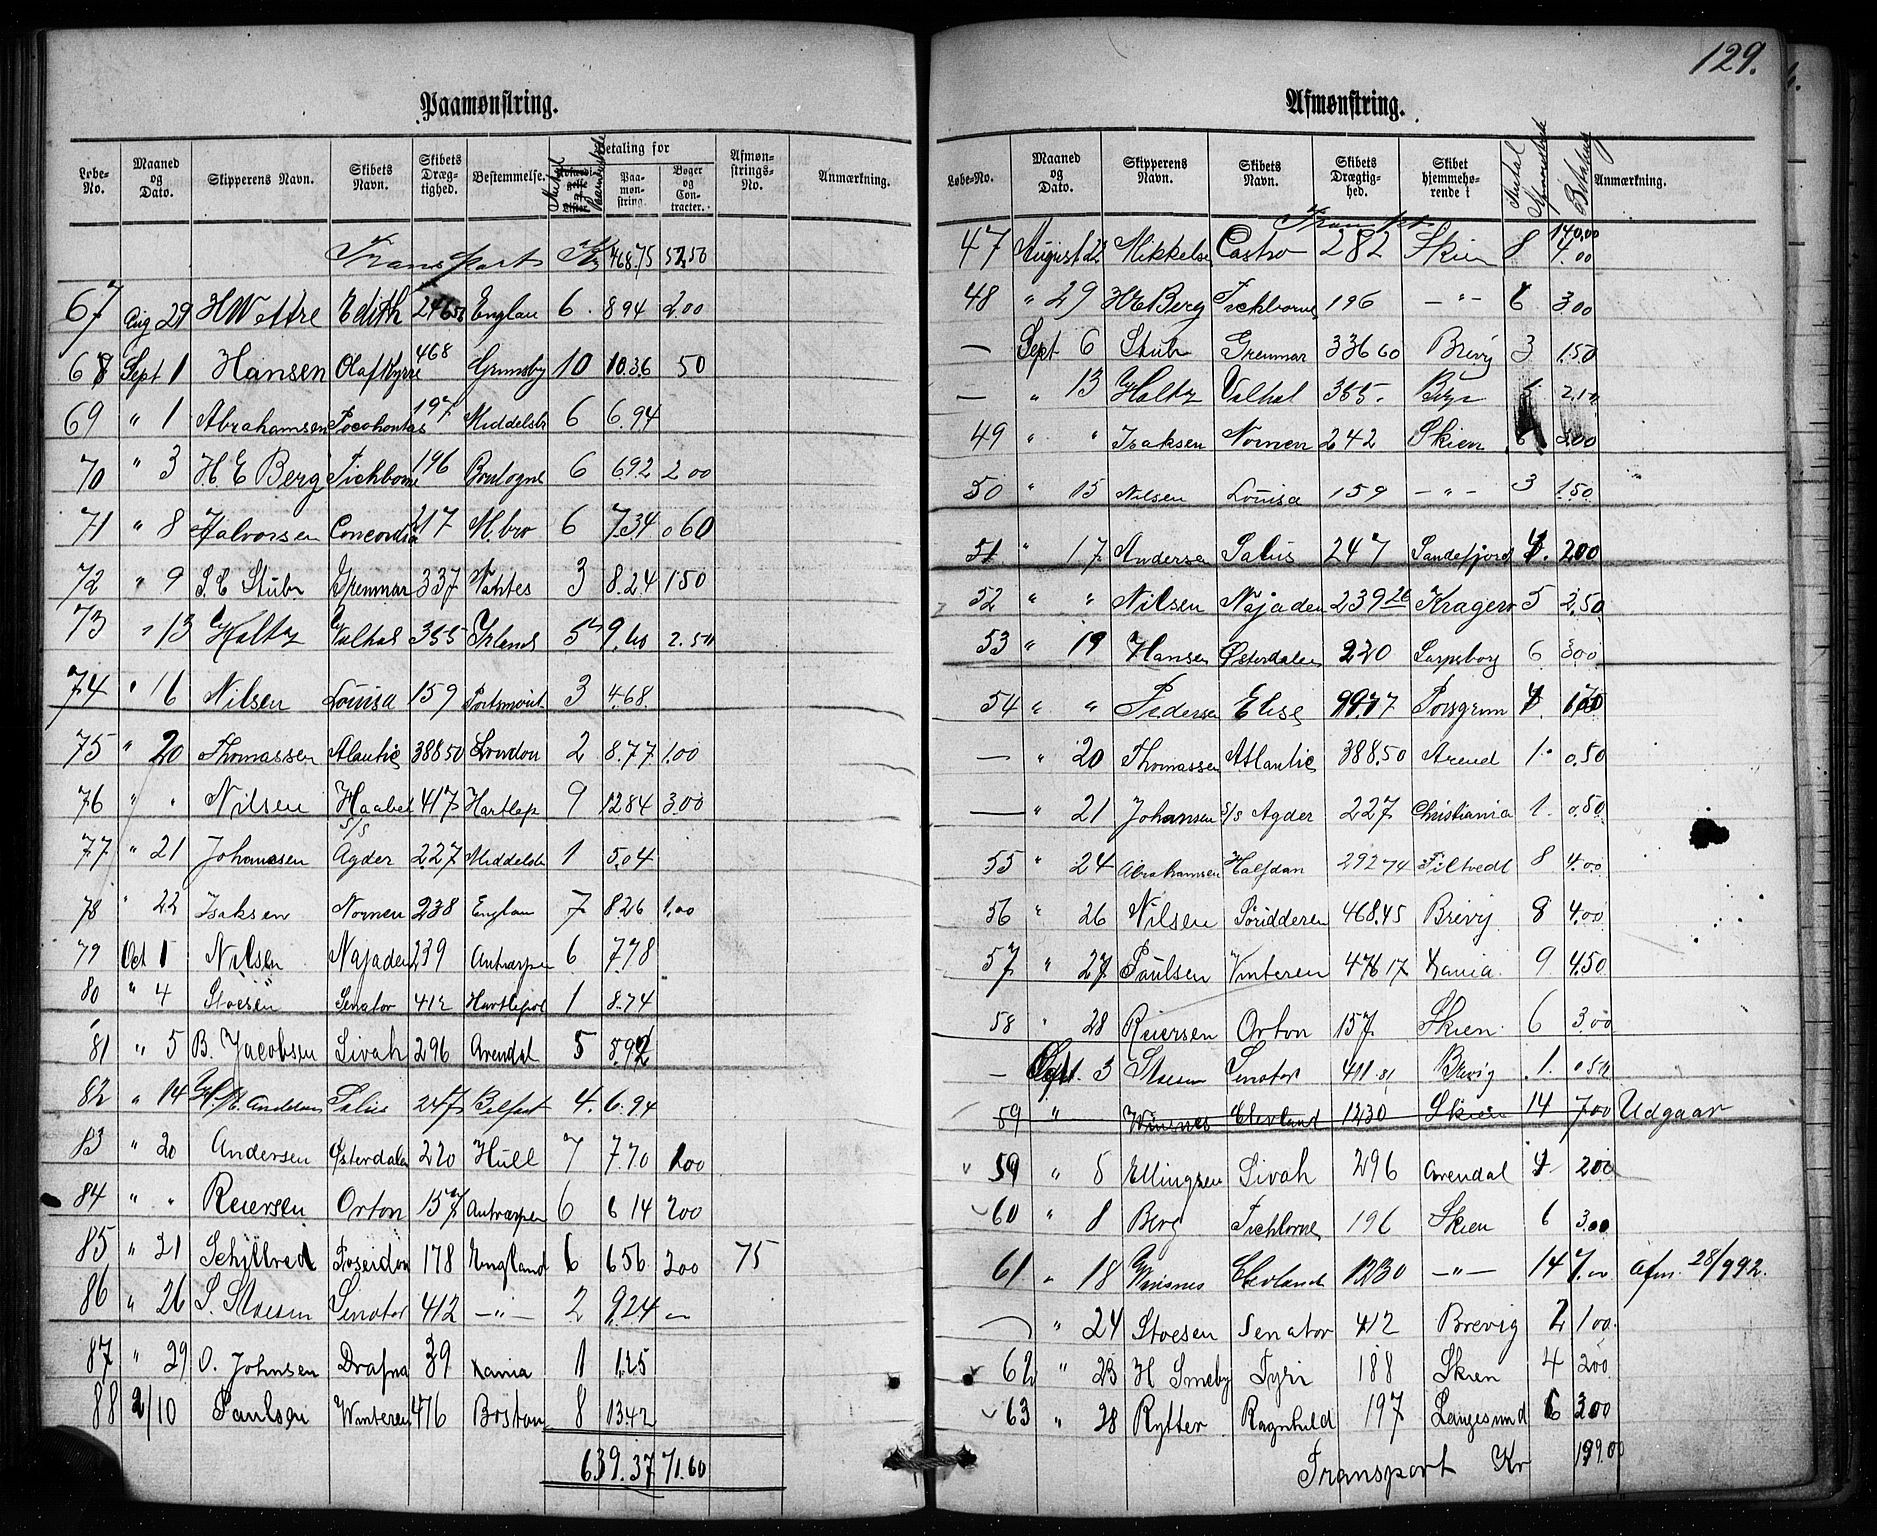 129.
Paamønstring.
Løbe-No. Maaned og Dato. Skipperens Navn. Skibets Navn. Skibets Drægtighed. Bestemmelse. Betaling for Paamønstring. Bøger og Contracter. Afmønstrings-No. Anmærkning.
Transport Kr 468.75 52.50
67 Aug 29 H Wettre Edith 246 Englan 6. 8 94 2.00
68 Sept 1 Hansen Olaf Kyrre 468 Grimsby 10 10.36 50
69 " 1 Abrahamsen Pocohontas 197 Middelsbr 6 6.94
70 " 3 H. E Berg Tichborne 196 Boulogne 6 6.92 2 00
71 " 8 Halvorsen Concordia 217 M.bro 6 7.34 0 60
72 " 9 S. E Stub Grenmar 337 Nantes 3 8.24 1 50
73 " 13 Holtz Valhal 355 Irland 5 9.40 2.50
74 " 16 Nilsen Louisa 159 Portsmout 3 4.68.
75 " 20 Thomassen Atlantic 388 50 London 2 8.77 1.00
76 " " Nilsen Haabet 417 Hartlep 9 12 84 3.00
77 " 21 Johannsen S/S Agder 227 Middelsbr 1 5.04
78 " 22 Isaksen Nornen 238 Englan 7 8.26 1.00
79 Oct 1 Nilsen Najaden 239 Antwerpen 6 7.78
80 " 4 Stoesen Senator 412 Hartlepool 1 8.74
81 " 5 B. Jacobsen Sivah 296 Arendal 5 5.92
82 " 14 Andersen Salus 247 Belfast 4. 6.94
83 " 20 Andersen Østerdalen 220 Hull 7 7.70 1.00
84 " " Reiersen Orton 157 Antwerpen 6 6 14 2 00
85 " 21 Schjelvred Poseidon 178 England 6 6 56 2 00 75
86 " 26 S. Stoesen Senator 412 -"- 2 9.24 —
87 " 29 O. Johnsen Drafna 39 Xania 1 1.25
88 2/10 Paulsen Winteren 476 Boston 8 13 42
639.37 71.60
Afmønstring.
Løbe-No. Maaned og Dato. Skipperens Navn. Skibets Navn. Skibets Drægtighed. Skibet hjemmehørende i Antal Betaling Anmærkning.
Transport 140.00
47 August 22 Mikkelse Castro 282 Skien 8 4.00
48 " 29 H E Berg Tichborne 196 -"- 6 3.00
— Sept 6 Stub Grenmar 336 60 Brevig 3 1.50
— " 13 Holtz Valhal 355. 2.10
49 " " Isaksen Nornen 242 Skien 6 3.00
50 " 15 Nilsen Louisa 159 -"- 3 1.50
51 " 17 Andersen Salus 247 Sandefjord 4. 2.00
52 " " Nilsen Najaden 239 26 Kragerø 5 2.50
53 " 19 Hansen Østerdalen 220 Sarpsborg 6 3.00
54 " " Pedersen Elise Porsgrun
— " 20 Thomassen Atlantic 388.50 Arend 1. 0.50
— " 21 Johansen S/s Agder 227 Christiania 1. 0.50
55 " 24 Abrahamsen Halfdan 292 74 Filtvedt 8 4.00
56 " 26 Nilsen Søridderen 468.45 Brevig 8 4.00
57 " 27 Paulsen Vinteren 476 17 Xania. 9 4.50
58 " 28 Reiersen Orton 157 Skien. 6 3.00
— 3 Stoesen Senator 411.81 Brevig 1. 0 50
59 " Winsnes Clevland 1230 Skien 14 7.00 Udgaar
59 " 5 Ellingsen Sivah 296 Arendal 4 2.00
60 " 8 Berg Tichborne 196 Skien 6 3.00
61 " 18 Winsnes Clevland 1230 -"- 14 7.00 Afm. 28/9 92.
" 24 Stoesen Senator 412 Brevig 2 1.00.
62 " 23 H Smeby Tyri 188 Skien 4 2.00
63 " 28 Rytter Ragnhild 197 Langesund 6 3.00
Transport Kr 199.00